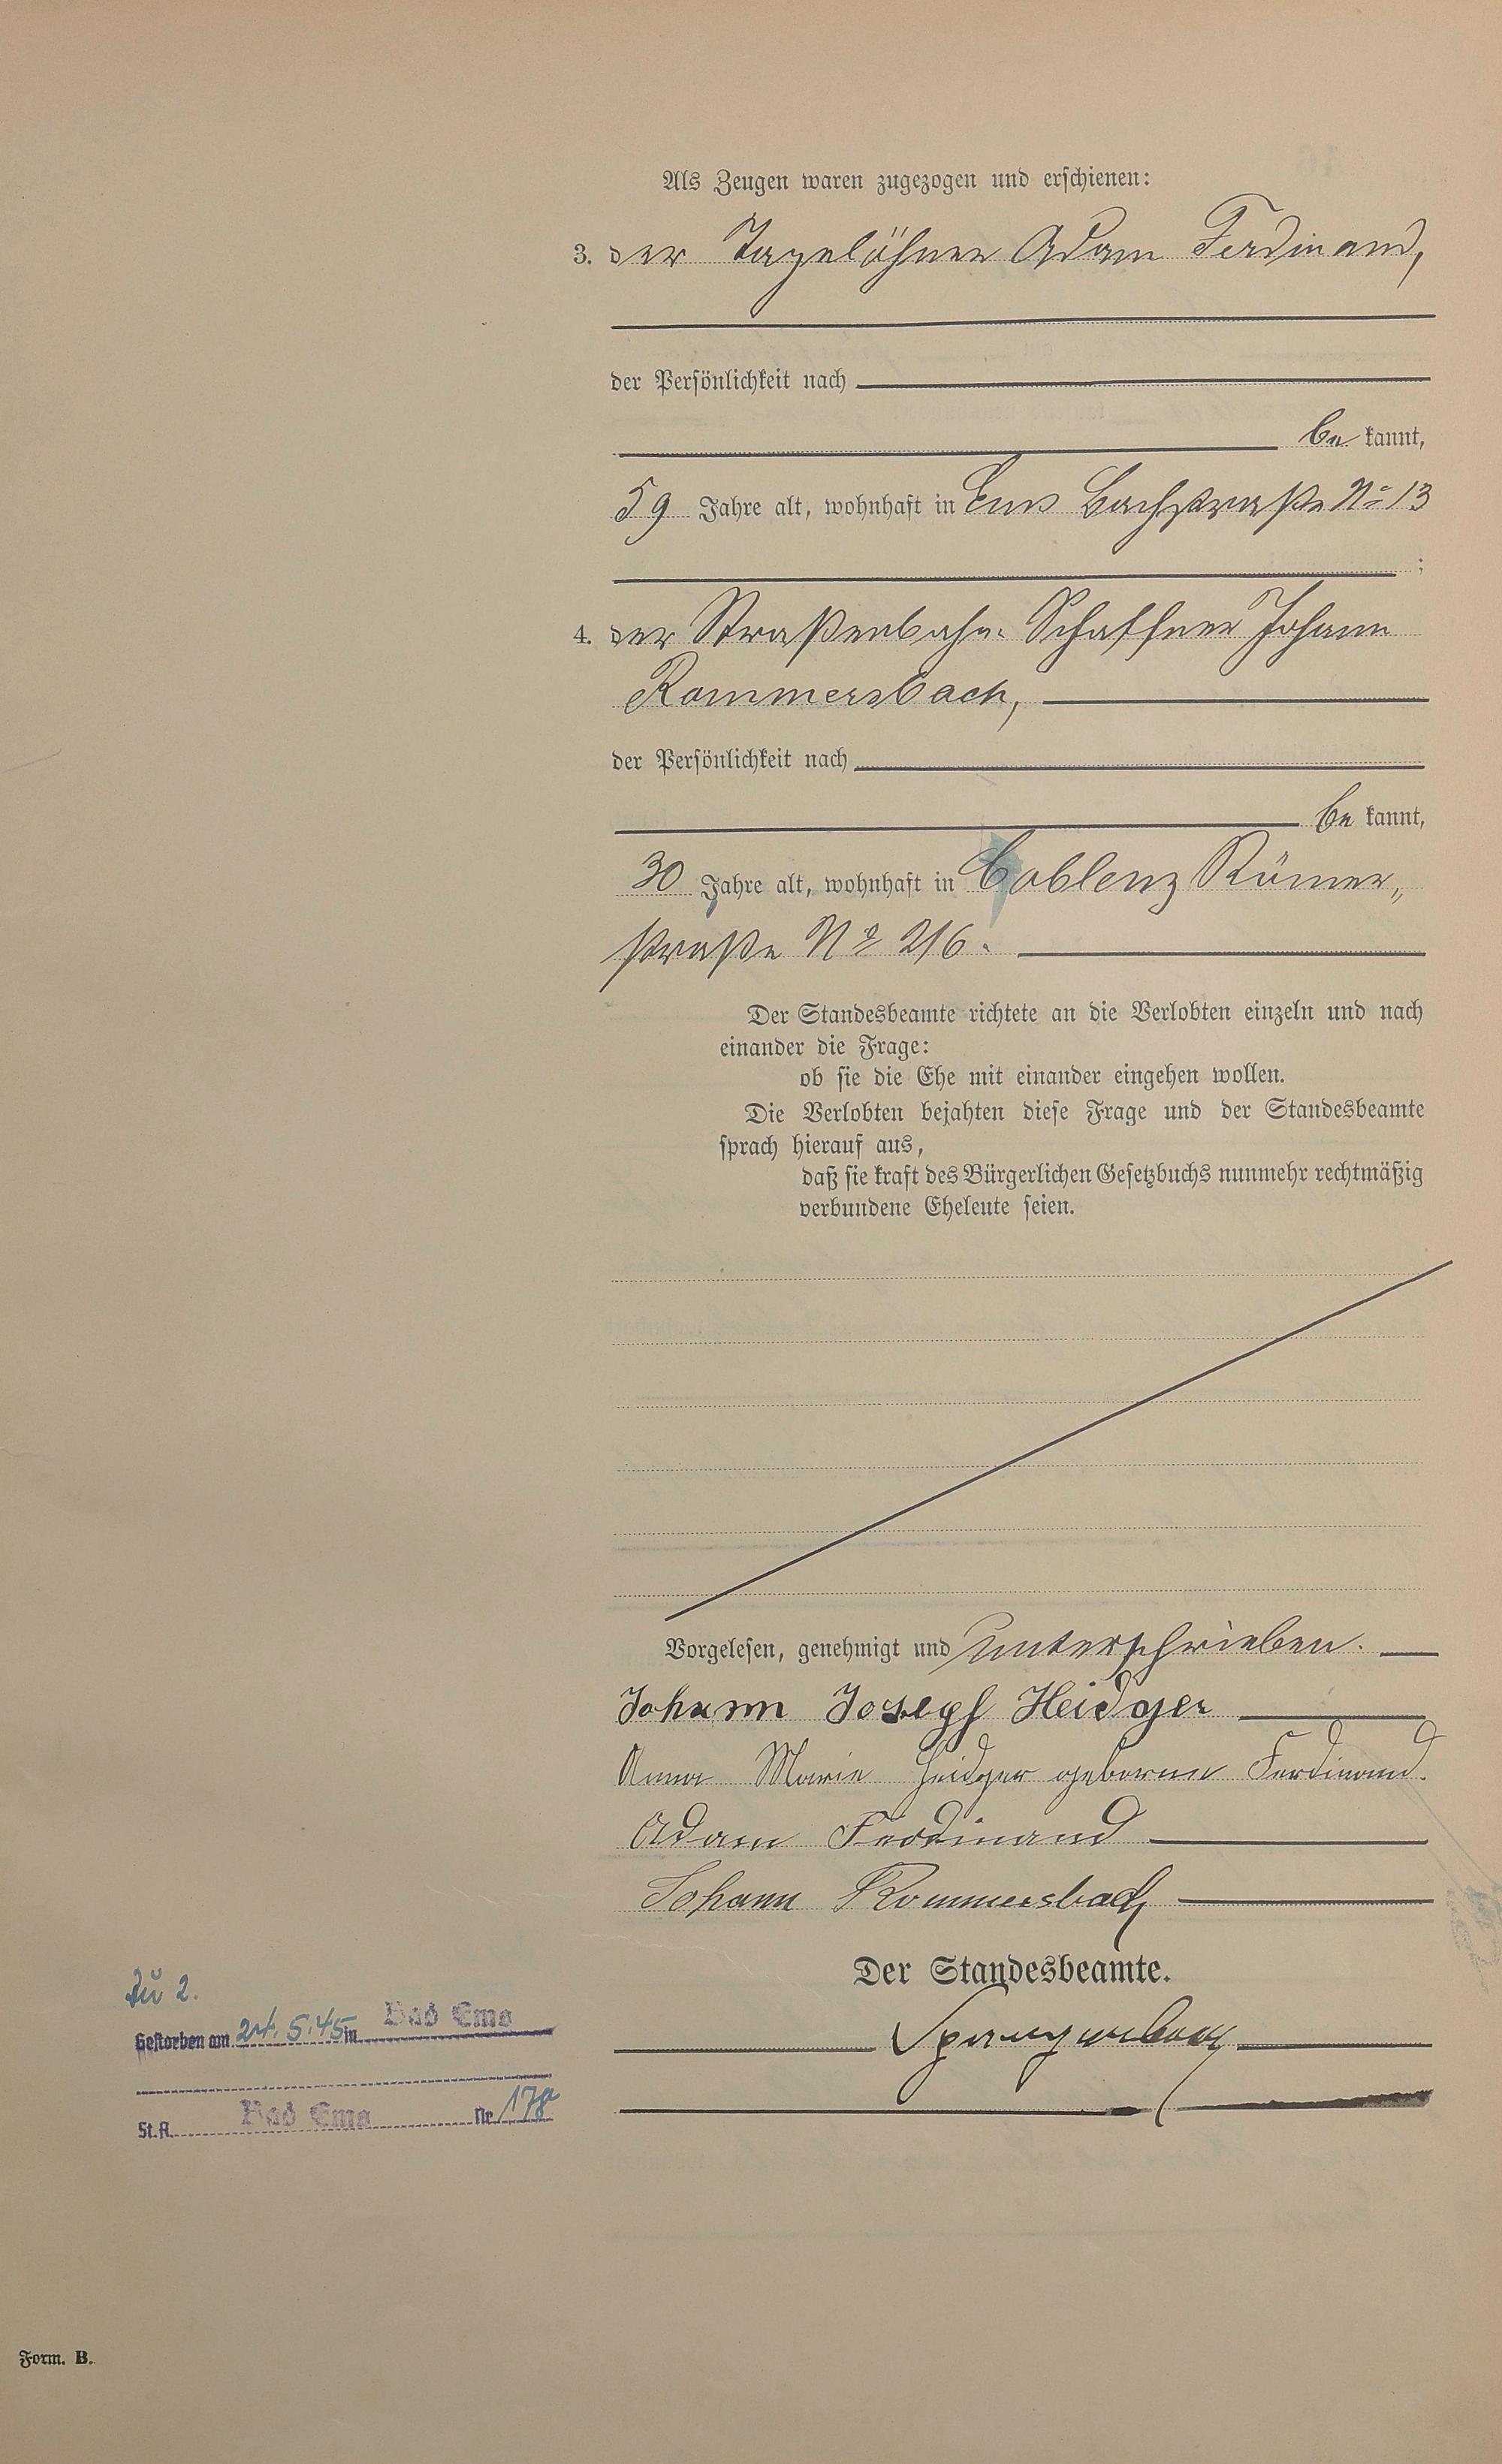 Als Zeugen waren zugezogen und erschienen:
3. der Tagelöhner Adam Ferdinand,
der Persönlichkeit nach
be kannt,
59 Jahre alt, wohnhaft in Ems Bachstraße No 13
;
4. der Straßenbahn-Schaffner Johann
Rommersbach,
der Persönlichkeit nach
be kannt,
30 Jahre alt, wohnhaft in Coblenz Römer-
straße No 216.
Der Standesbeamte richtete an die Verlobten einzeln und nach
einander die Frage:
ob sie die Ehe mit einander eingehen wollen.
Die Verlobten bejahten diese Frage und der Standesbeamte
sprach hierauf aus,
daß sie kraft des Bürgerlichen Gesetzbuchs nunmehr rechtmäßig
verbundene Eheleute seien.
Vorgelesen, genehmigt und unterschrieben.
Johann Joseph Heidger
Anna Marie Heidger geborene Ferdinand.
Adam Ferdinand
Johann Rommersbach
Der Standesbeamte.
Zu 2.
Gestorben am 24.5.45 in Bad Ems
St.A. Bad Ems Nr. 178
Form. B.